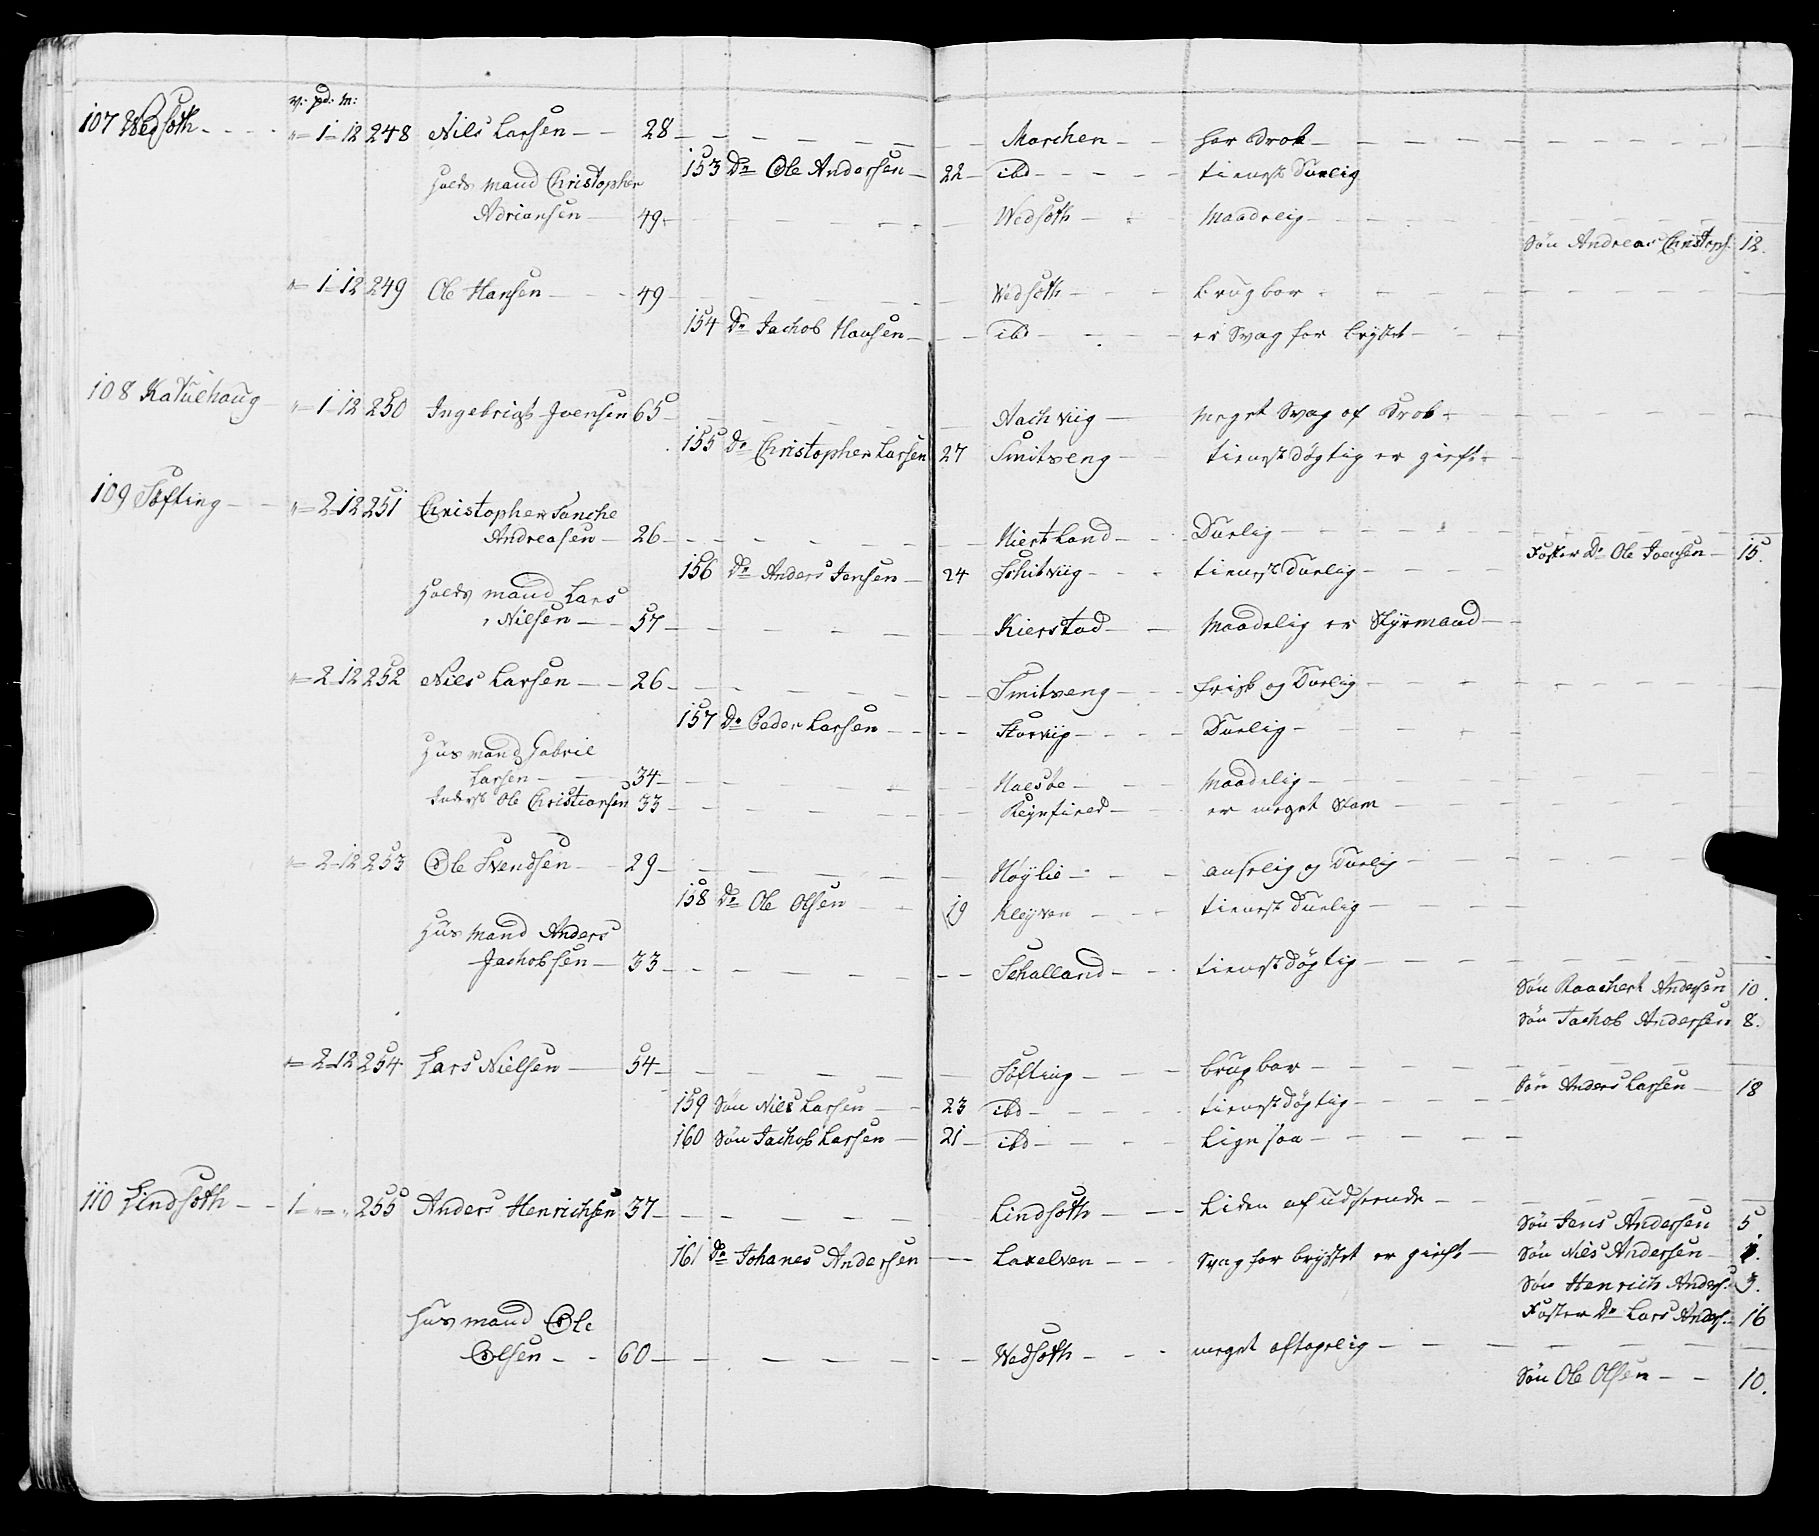 v: pd: m:
107 Wedsøth - - - " - 1 - 12 248 Nils Larsen - - 28 - - - - - Marchen - - har Brok - - - -
153 Dr Ole Andersen - 22 - ibd - - - - tienest Duelig
Huus mand Christopher
Adriansen - 49 - - - - Wedsøth - - - Maadelig - - -
Søn Andreas Christoph: 12.
" - 1 - 12 249 Ole Hansen - - - 49 - - - - Wedsøth - - - brugbar - - -
154 Dr Jachob Hansen - - - ibd - - - - er svag for brystet - - -
108 Katuehaug - " - 1 - 12 250 Ingebrigt Joensen 65 - - - - Aachviig - meget svag af Brok -
155 Dr Christopher Larsen 27 Smitseng - - tienestdøgtig er gieft - -
109 Søfting - - " - 2 - 12 251 Christopher Tanche
Andreasen - 26 - - - - Kiestland - - Duelig - - -
Foster Dr Ole Joensen - 15.
156 Dr Anders Jensen - 24 Schitviig - - - tienest Duelig - - -
Huus mand Lars
Nilsen - - 57 - - - - Kierstad - - Maadelig er Styrmand - -
" - 2 - 12 252 Nils Larsen - - 26 - - - - Smitseng - - - frisk og Duelig - - -
157 Dr Peder Larsen - - - - Storviig - - - - Duelig - - -
Huus mand Gabriel
Larsen - - 34 - - - Naesøe - - - Maadelig - - -
Inderst Ole Christiansen 33 - - - Reynfiored - - er meget Stam - - -
" - 2 - 12 253 Ole Svendsen - - 29 - - - - Høylie - - - anselig og Duelig - - -
158 Dr Ole Olsen - - 19 Kleyven - - - tienest duelig - - -
Huus mand Anders
Jachobsen - 33 - - - - Schalland - - - tienestdøgtig - - -
Søn Raachert Andersen 10.
Søn Jachob Andersen 8.
" - 2 - 12 254 Lars Nielsen - - 54 - - - - Søfting - - - brugbar - - -
Søn Anders Larsen - 18
159 Søn Nils Larsen - - 23 ibd - - - - tienestdøgtig - - -
160 Søn Jachob Larsen - 21 - ibd - - - - Ligesaa - - -
110 Lindsøth - - 1 - " - " 255 Anders Henrichsen 37 - - - - Lindsøth - - - Liden af udseende - - -
Søn Jens Andersen 5
161 Dr Johanes Andersen - - Laxelven - - - svag for brystet er gieft - Søn Nils Andersen - 1.
Søn Henrich Anders: 3.
Foster Dr Lars Anders: 16
Huus mand Ole
Olsen - - 60 - - - - Wedsøth - - - meget aftagelig - - -
Søn Ole Olsen - - 10.